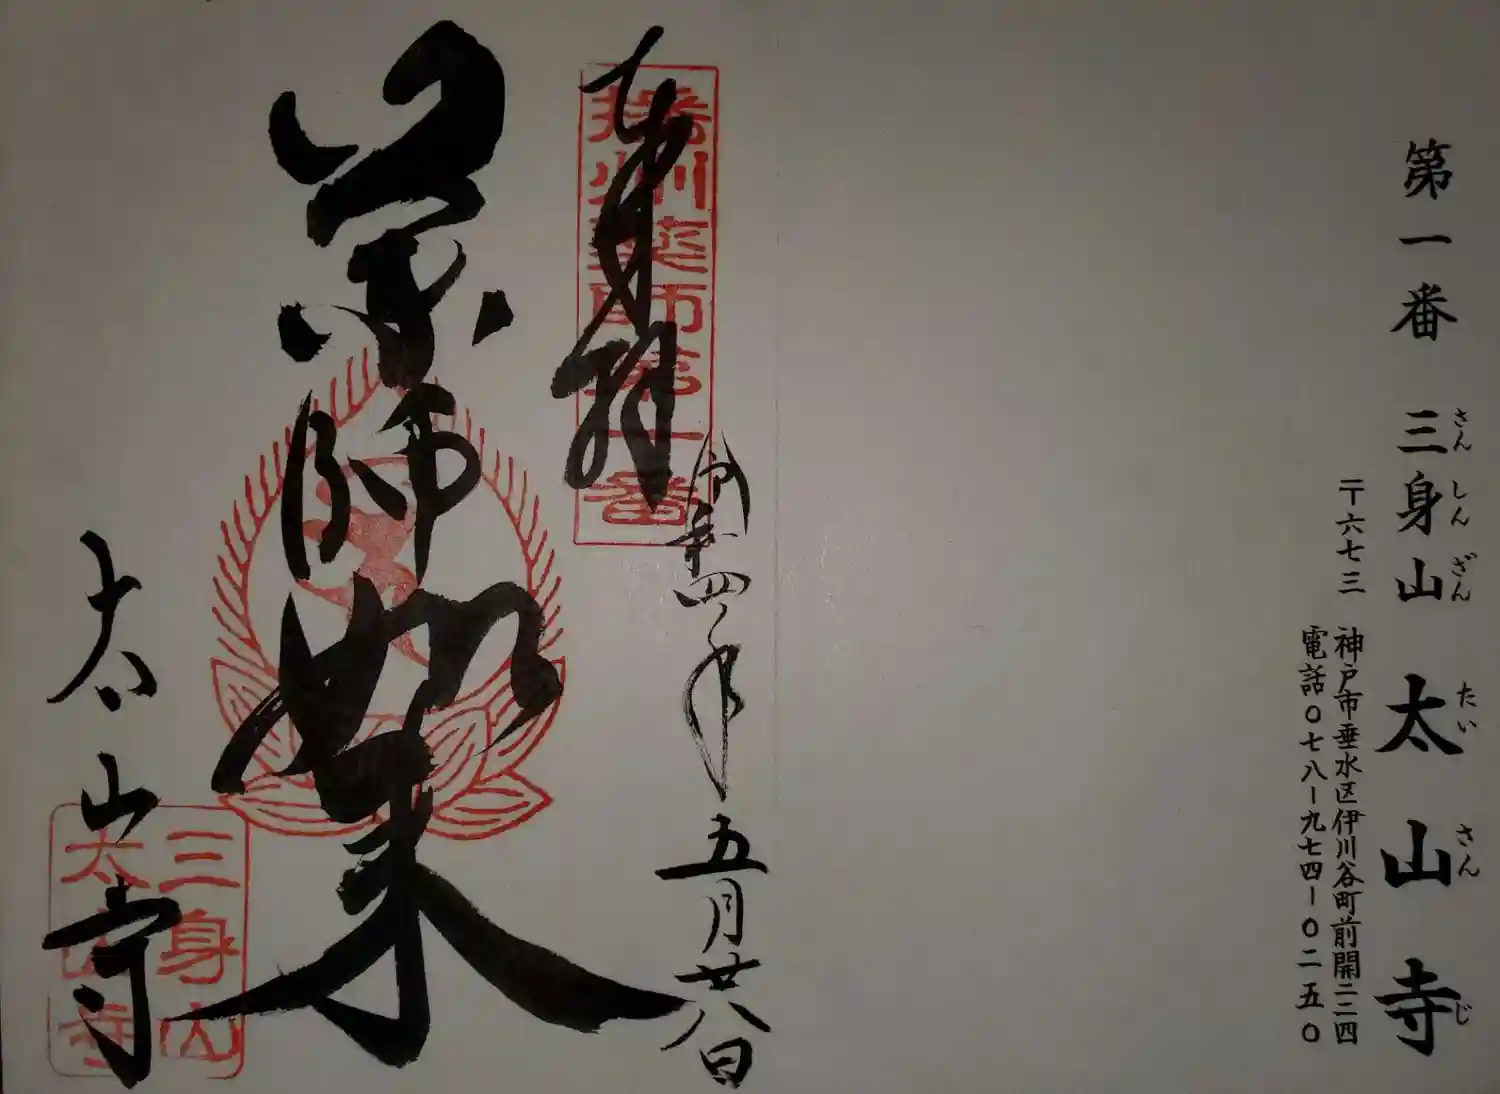 第一番 三身山 太山寺
さんしんざん たいさんじ
〒六七三 神戸市垂水区伊川谷町前開二二四
電話〇七八ー九七四ー〇二五〇
奉拝
播州薬師第一番
令和四年五月廿八日
薬師如来
太山寺
三身山
太山寺